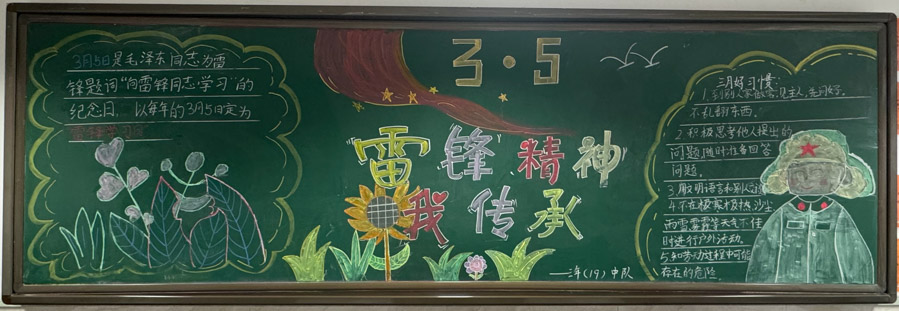 3月5日是毛泽东同志为雷
锋题词“向雷锋同志学习”的
纪念日。以每年的3月5日定为
3·5
“雷锋”精神
我传承
三年(19)中队
三月好习惯:
1.到别人家做客,见主人,先问好,
不乱翻东西。
2.积极思考他人提出的
问题,随时准备回答
问题。
3.用文明语言和别人
4.不在极寒极热、沙尘
雨雪雾霾等天气不佳
时进行户外活动。
5.知劳动过程中可能
存在的危险